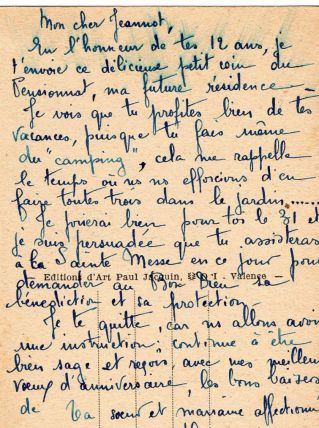 Mon cher Jeannot,
En l'honneur de tes 12 ans, je
t'envoie ce délicieux petit coin du
Pensionnat, ma future résidence -
Je vois que tu profites bien de tes
vacances, puisque tu fais même
du "camping", cela me rappelle
le temps où ns ns efforcions d'en
faire toutes trois dans le jardin......
Je penserai bien pour toi le 31 et
je suis persuadée que tu assisteras
à la Sainte Messe en ce jour pour
Editions d'Art Paul Jacquin, - Valence -
demander au Bon Dieu sa
bénédiction et sa protection -
Je te quitte, car ns allons avoir
une instruction; continue à être
bien sage et reçois, avec mes meilleurs
voeux d'anniversaire, les bons baisers
de ta soeur et marraine